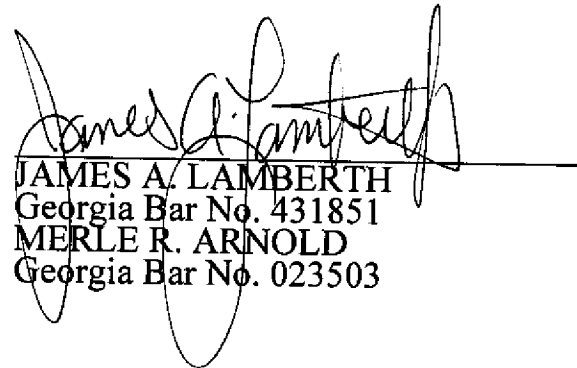 James A. Lamberth
JAMES A. LAMBERTH
Georgia Bar No. 431851
MERLE R. ARNOLD
Georgia Bar No. 023503